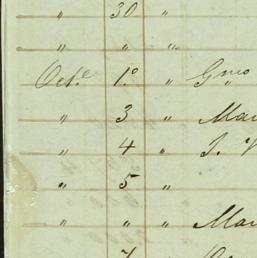 " 30 "
" " "
Oct.e 1.o " Gmo
" 3 " Mar
" 4 " J.
" 5 "
" " " Mar
7